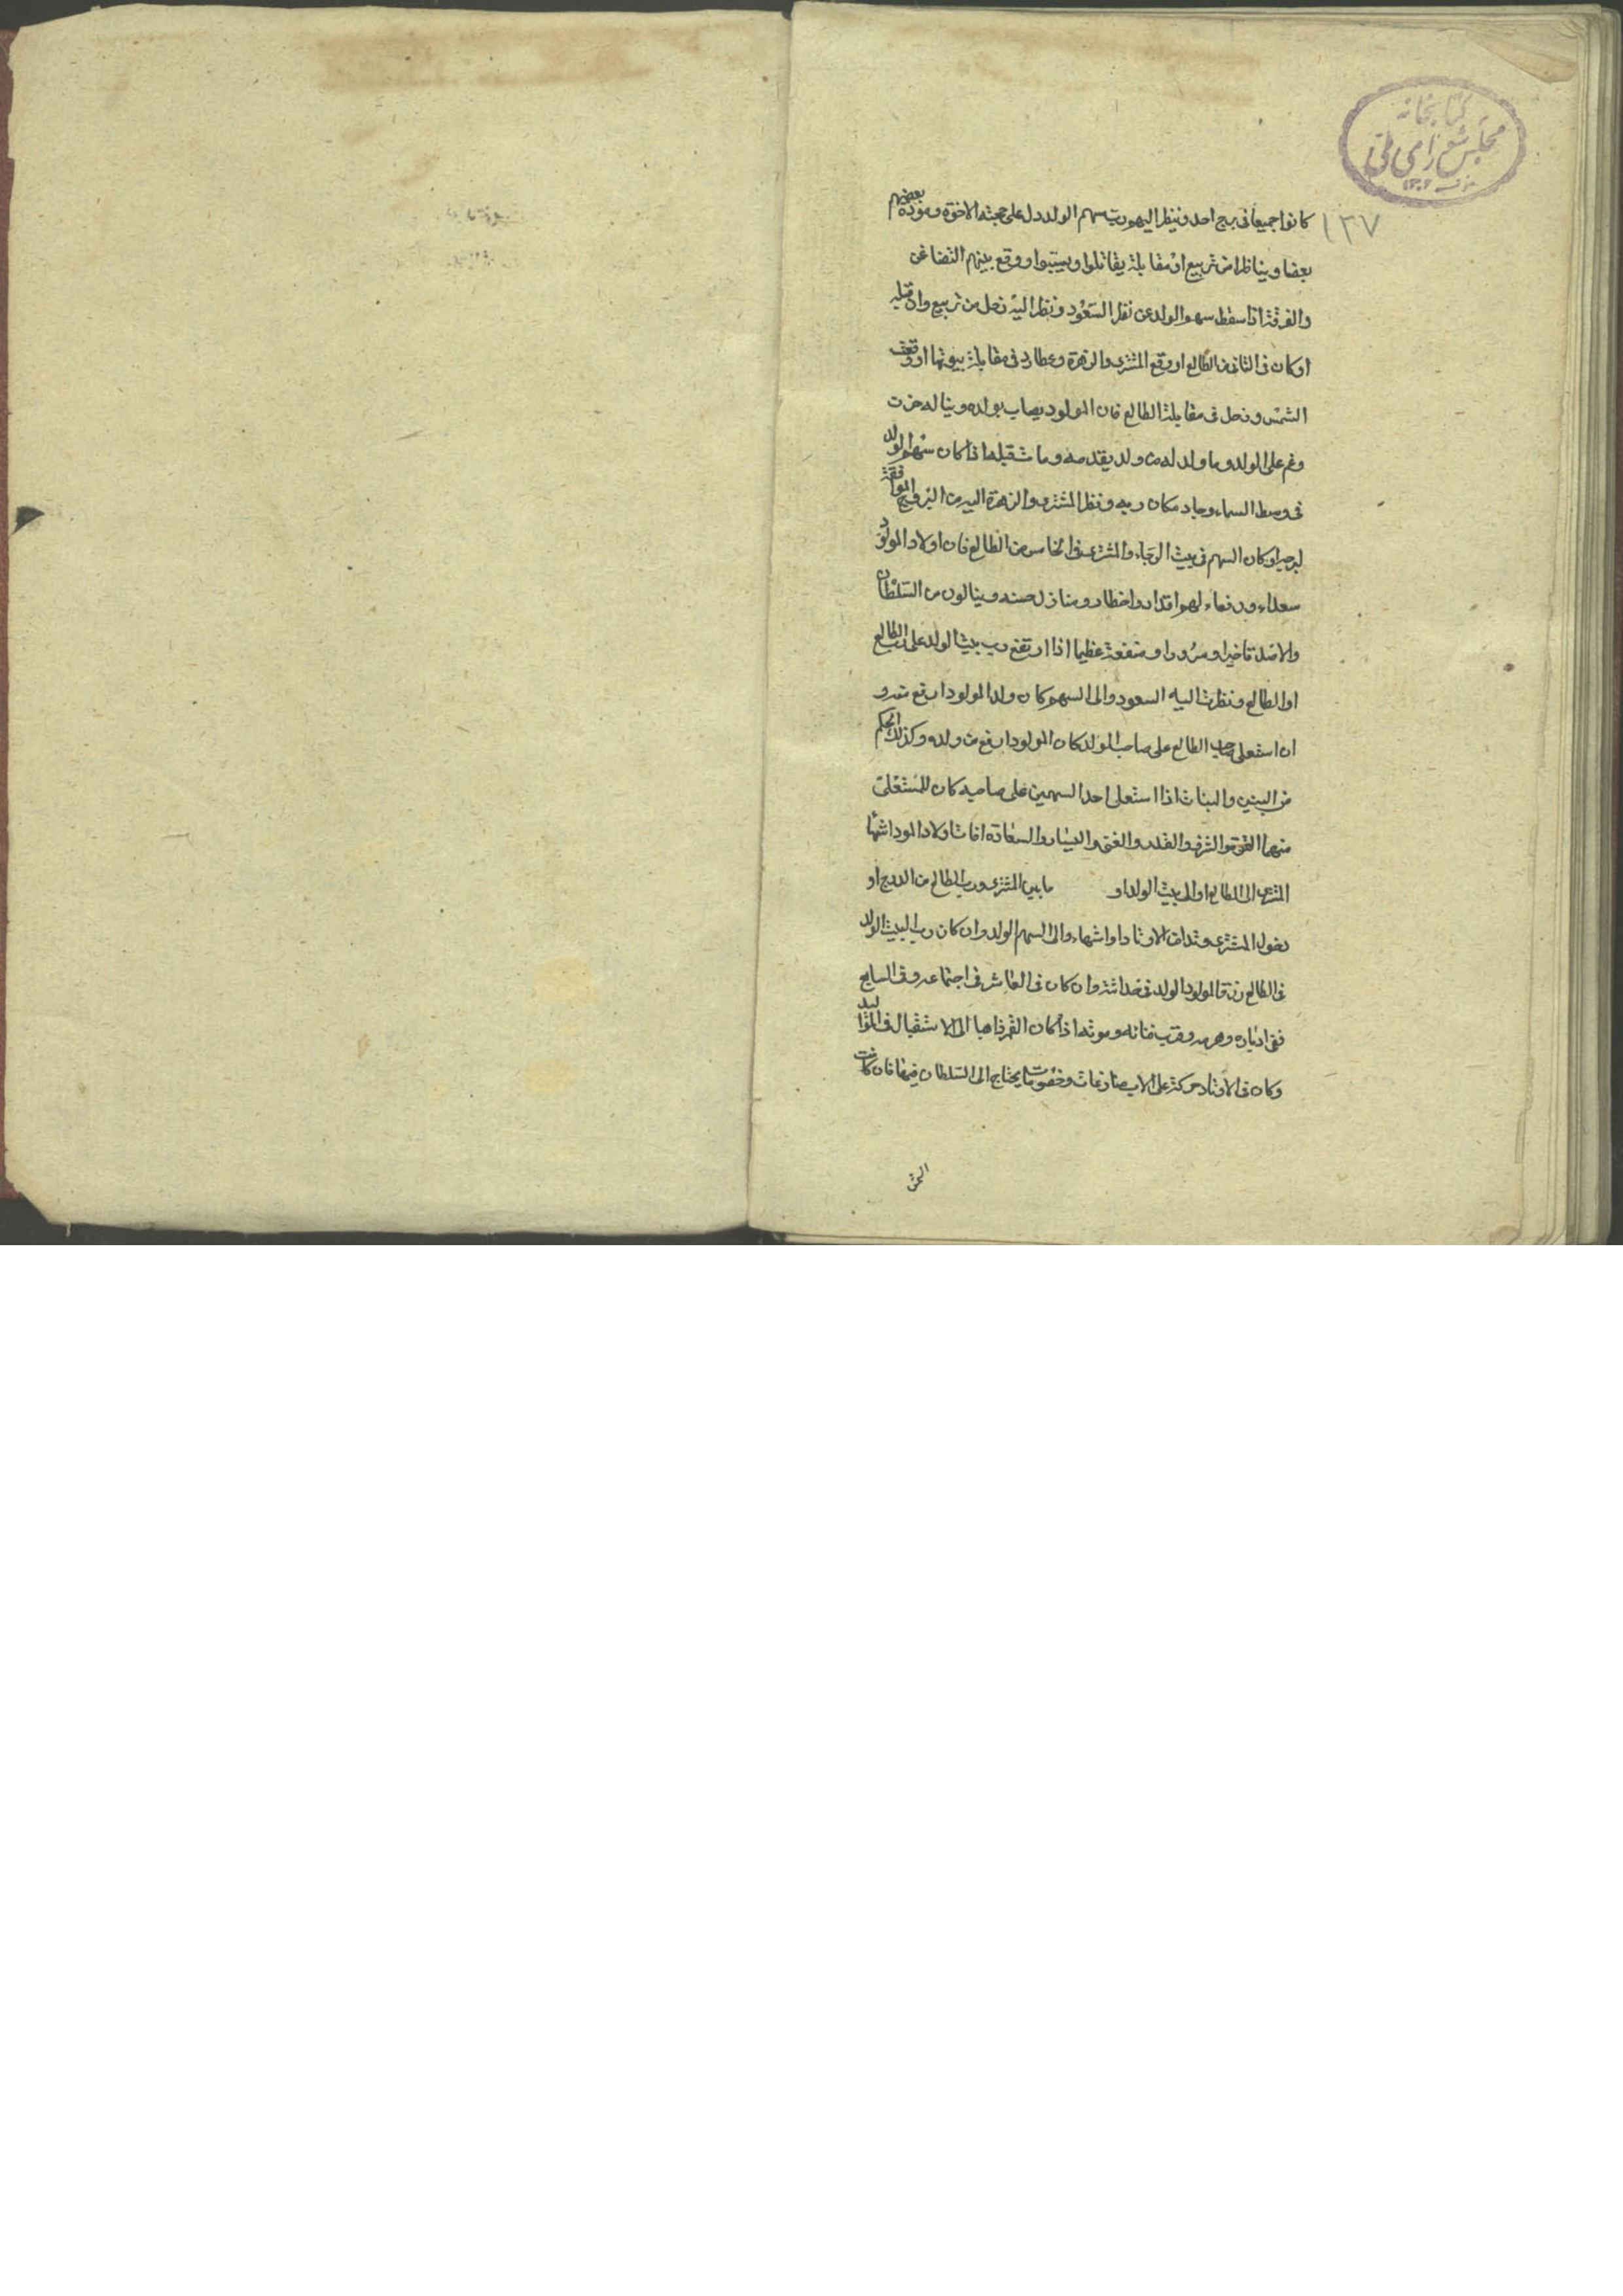 كتابخانه
مجلس شورای ملی
١٣٧
كانوا جميعا فى برج احد و ينظر اليهم رب سهم الولد دل على محبته الاخوة و مودة بعضهم
بعضا و يناظرا من تربيع او مقابلة يقاتلوا و يستبوا و وقع بينهم التضاغن
والفرقة اذا سقط سهم الولد عن نظر السعود و نظر اليه زحل من تربيع وان
اوكان فى الثانى من الطالع او وقع المشترى والزهرة وعطارد فى مقابلة بيوتها او وقعت
الشمس و زحل فى مقابلة الطالع فان المولود يصاب بولده و يناله حزن
وغم على الولد و ما ولد له من ولد يقدمه و ما اذا كان سهم الولد
فى وسط السماء و جاد مكان ربه و نظر المشترى والزهرة اليه من البروج الموافقة
او كان السهم فى بيت الرجاء والمشترى فى الخامس من الطالع فان اولاد المولود
سعداء و رفعاء لهم اقدار و اخطار و منازل حسنه و ينالون من السلطان
و سرورا و منفعة عظيما اذا ارتفع رب بيت الولد على رب الطالع
او الطالع و نظرت اليه السعود والى السهم كان ولد المولود ارفع منه و
ان استعلى صاحب الطالع على صاحب المولد كان المولود ارفع من ولده و كذلك الحكم
من البنين والبنات اذا استعلى احد السهمين على صاحبه كان للمستعلى
منهما القوة و الشرف و القدر و الغنى و اليسار و السعادة
المشترى الى الطالع او الى بيت الولد او ما بين المشترى و رب الطالع من الدرج او
المشترى الاوتاد والى السهم الولد وان كان رب البيت الولد
فى الطالع رزق المولود الولد فى حداثته وان كان فى العاشر فى اجتماعه و فى السابع
ففى ادباره و هرمه و قرب فنائه و موته اذا كان القمر ذاهبا الى الاستقبال فى المواليد
و كان فى الاوتاد منازعات و خصومات يحتاج الى السلطان فيها فان كانت